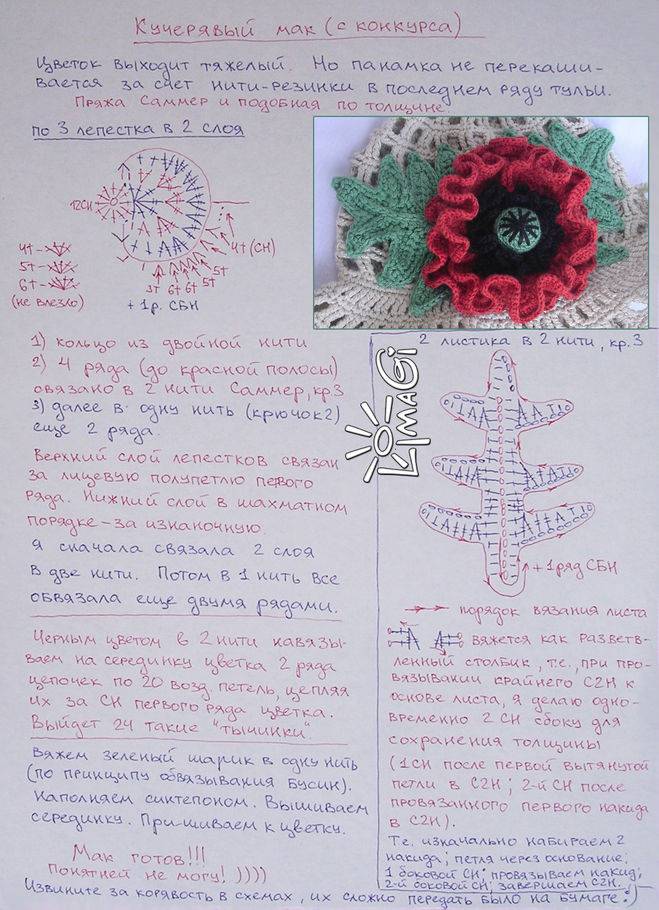 Кучерявый мак (с конкурса)
Цветок выходит тяжелый. Но панамка не перекаши-
вается за счет нити-резинки в последнем ряду тульи.
Пряжа Саммер и подобная по толщине
по 3 лепестка в 2 слоя
12СН
4т (СН)
5т
5т
6т
6т
3т
4т-
5т-
6т-
(не влезло)
+ 1р. СБН
1) кольцо из двойной нити
2) 4 ряда (до красной полосы)
связано в 2 нити Саммер, кр3
3) далее в одну нить (крючок2)
еще 2 ряда.
Верхний слой лепестков связан
за лицевую полупетлю первого
ряда. Нижний слой в шахматном
порядке - за изнаночную.
Я сначала связала 2 слоя
в две нити. Потом в 1 нить все
обвязала еще двумя рядами.
Черным цветом в 2 нити навязы-
ваем на серединку цветка 2 ряда
цепочек по 20 возд. петель, цепляя
их за СН первого ряда цветка.
Выйдет 24 такие "тычинки".
Вяжем зеленый шарик в одну нить
(по принципу обвязывания бусин).
Наполняем синтепоном. Вышиваем
серединку. При-шиваем к цветку.
Мак готов!!!
Понятней не могу! ))))
LimaGi
2 листика в 2 нити, кр.3
+ 1 ряд СБН
порядок вязания листа
вяжется как разветв-
ленный столбик, т.е., при про-
вязывании крайнего С2Н к
основе листа, я делаю одно-
временно 2 СН сбоку для
сохранения толщины
(1СН после первой вытянутой
петли в С2Н; 2-й СН после
провязанного первого накида
в С2Н).
Т.е. изначально набираем 2
накида; петля через основание;
1 боковой СН; провязываем накид;
2-й боковой СН; завершаем С2Н.
Извините за корявость в схемах, их сложно передать было на бумаге:)